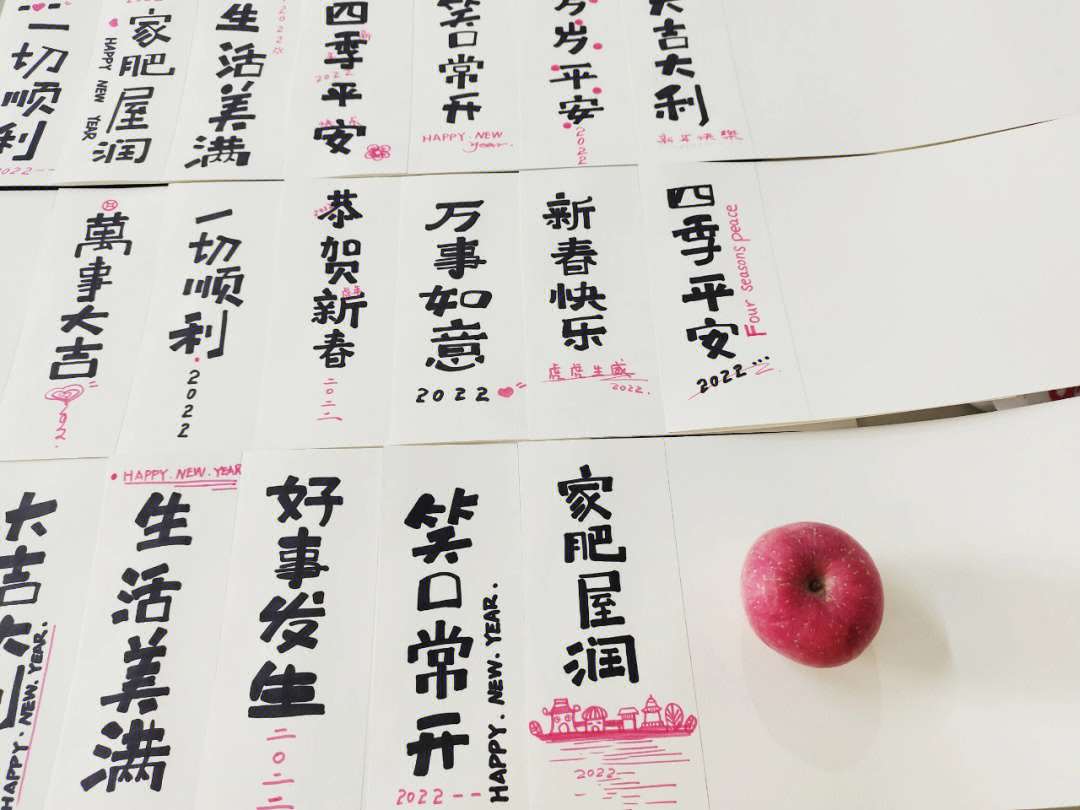 一切顺利
2022--
家肥屋润
HAPPY NEW YEAR
生活美满
2022
四季平安
2022
快乐
笑口常开
HAPPY.NEW
year.
万岁平安
2022
大吉大利
新年快樂
萬事大吉
202.
一切顺利
.2022
恭贺新春
2022
虎年
二〇二二
万事如意
2022
新春快乐
虎虎生威
2022.
四季平安
Four seasons peace
2022...
大吉大利
HAPPY.NEW.YEAR.
• HAPPY.NEW.YEAR
生活美满
好事发生
二〇二二
笑口常开
HAPPY.NEW.YEAR.
2022--
家肥屋润
2022—